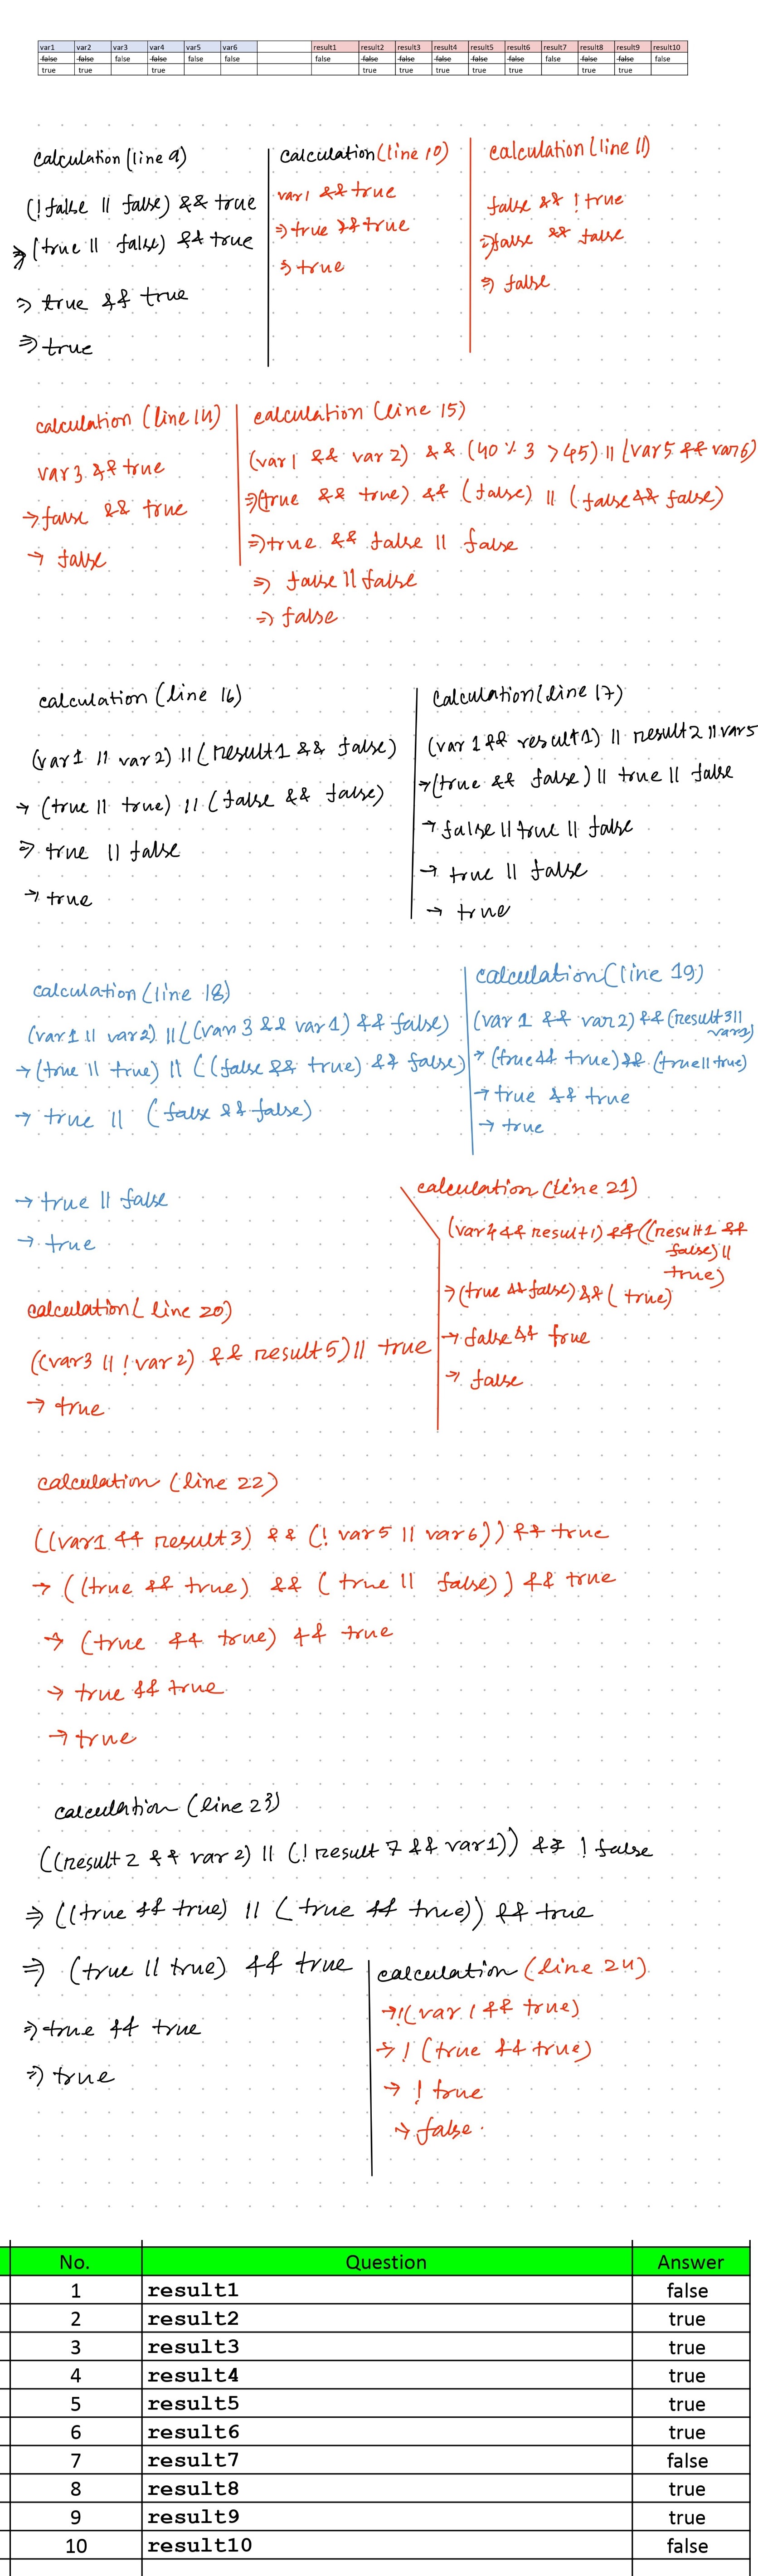 var1 var2 var3 var4 var5 var6 result1 result2 result3 result4 result5 result6 result7 result8 result9 result10
false false false false false false false false false false false false false false false false
true true true true true true true true true true
calculation (line 9)
(! false || false) && true
⇒ (true || false) && true
⇒ true && true
⇒ true
calculation (line 10)
var1 && true
⇒ true && true
⇒ true
calculation (line 11)
false && ! true
⇒ false && false
⇒ false
calculation (line 14)
var3 && true
→ false && true
→ false
calculation (line 15)
(var1 && var2) && (40 % 3 > 45) || (var5 && var6)
⇒ (true && true) && (false) || (false && false)
⇒ true && false || false
⇒ false || false
⇒ false
calculation (line 16)
(var1 || var2) || (result1 && false)
→ (true || true) || (false && false)
⇒ true || false
→ true
Calculation (line 17)
(var1 && result1) || result2 || var5
→ (true && false) || true || false
→ false || true || false
→ true || false
→ true
calculation (line 18)
(var1 || var2) || ((var3 && var1) && false)
→ (true || true) || ((false && true) && false)
→ true || (false && false)
→ true || false
→ true
calculation (line 19)
(var1 && var2) && (result3 ||
→ (true && true) && (true || true)
→ true && true
→ true
calculation (line 20)
((var3 || ! var2) && result5) || true
→ true
calculation (line 21)
(var4 && result1) && ((result1 &&
false) ||
true)
⇒ (true && false) && ( true)
→ false && true
→ false
calculation (line 22)
((var1 && result3) && (! var5 || var6)) && true
→ ((true && true) && (true || false)) && true
→ (true && true) && true
→ true && true
→ true
calculation (line 23)
((result2 && var2) || (! result7 && var1)) && ! false
⇒ ((true && true) || (true && true)) && true
⇒ (true || true) && true
⇒ true && true
⇒ true
calculation (line 24)
→ !(var1 && true)
→ ! (true && true)
→ ! true
→ false.
No. Question Answer
1 result1 false
2 result2 true
3 result3 true
4 result4 true
5 result5 true
6 result6 true
7 result7 false
8 result8 true
9 result9 true
10 result10 false